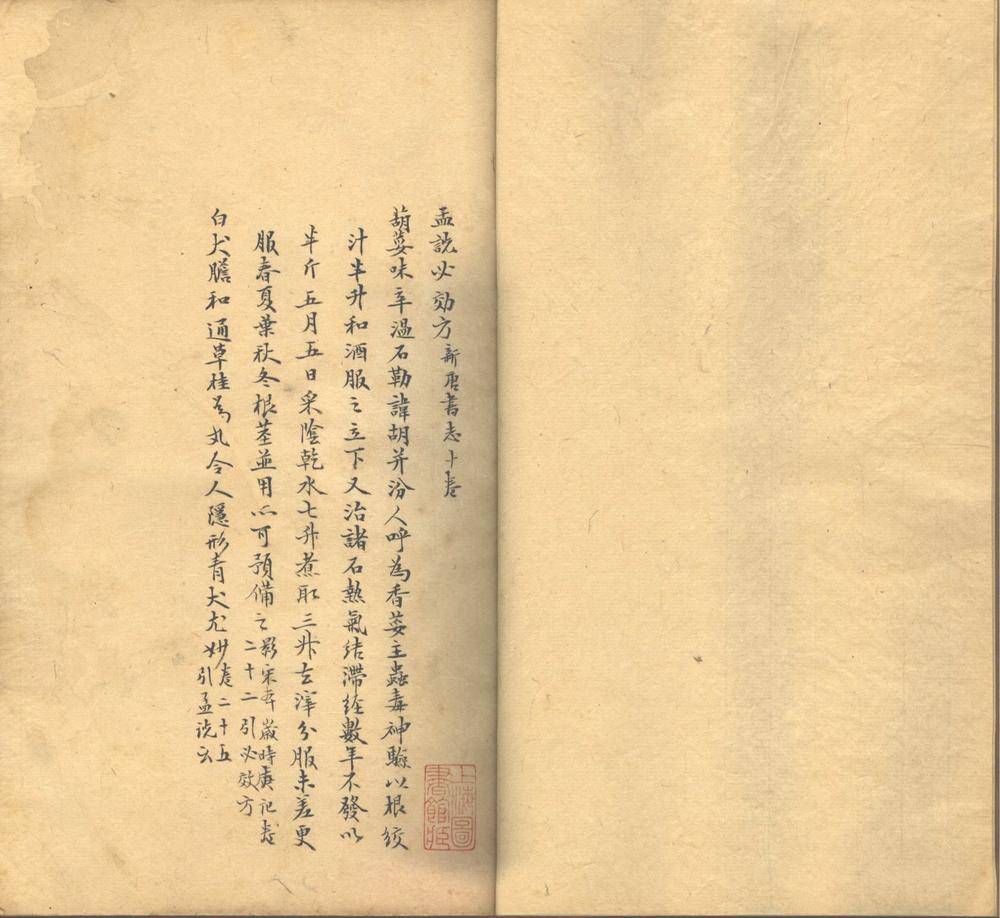 孟詵必効方新唐書志十卷
葫荽味辛溫石勒諱胡并汾人呼為香荽主蟲毒神驗以根絞
汁半升和酒服之立下又治諸石熱氣结滯经數年不發以
半斤五月五日采陰乾水七升煮取三升去滓分服未差更
服春夏葉秋冬根莖並用亦可預備之影宋本嵗時廣記卷
二十二引必效方
白犬膽和通草桂為丸令人隱形青犬尤妙卷二十五
引孟詵云
上海圖
書館藏